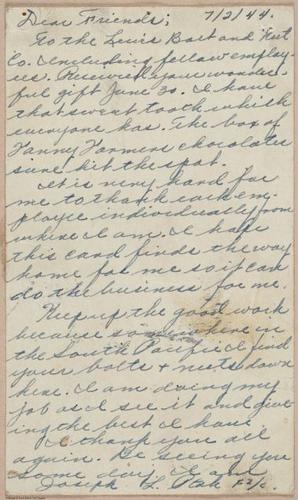 Dear Friends; 7/2/44.
To the Lewis Bolt and Nut
Co. Including fellow employ-
ees. Received your wonder-
ful gift June 30. I have
that sweet tooth which
everyone has. The box of
Fanny Farmers chocolates
sure hit the spot.
It is very hard for
me to thank each em-
ployee individually from
where I am. I hope
this card finds the way
home for me so it can
do the business for me.
Keep up the good work
because somewhere in
the South Pacific I find
your bolts + nuts down
here. I am doing my
job as I see it and giv-
ing the best I have.
I thank you all
again. Be seeing you
some day. I am
Joseph L. Ptak F2/c.